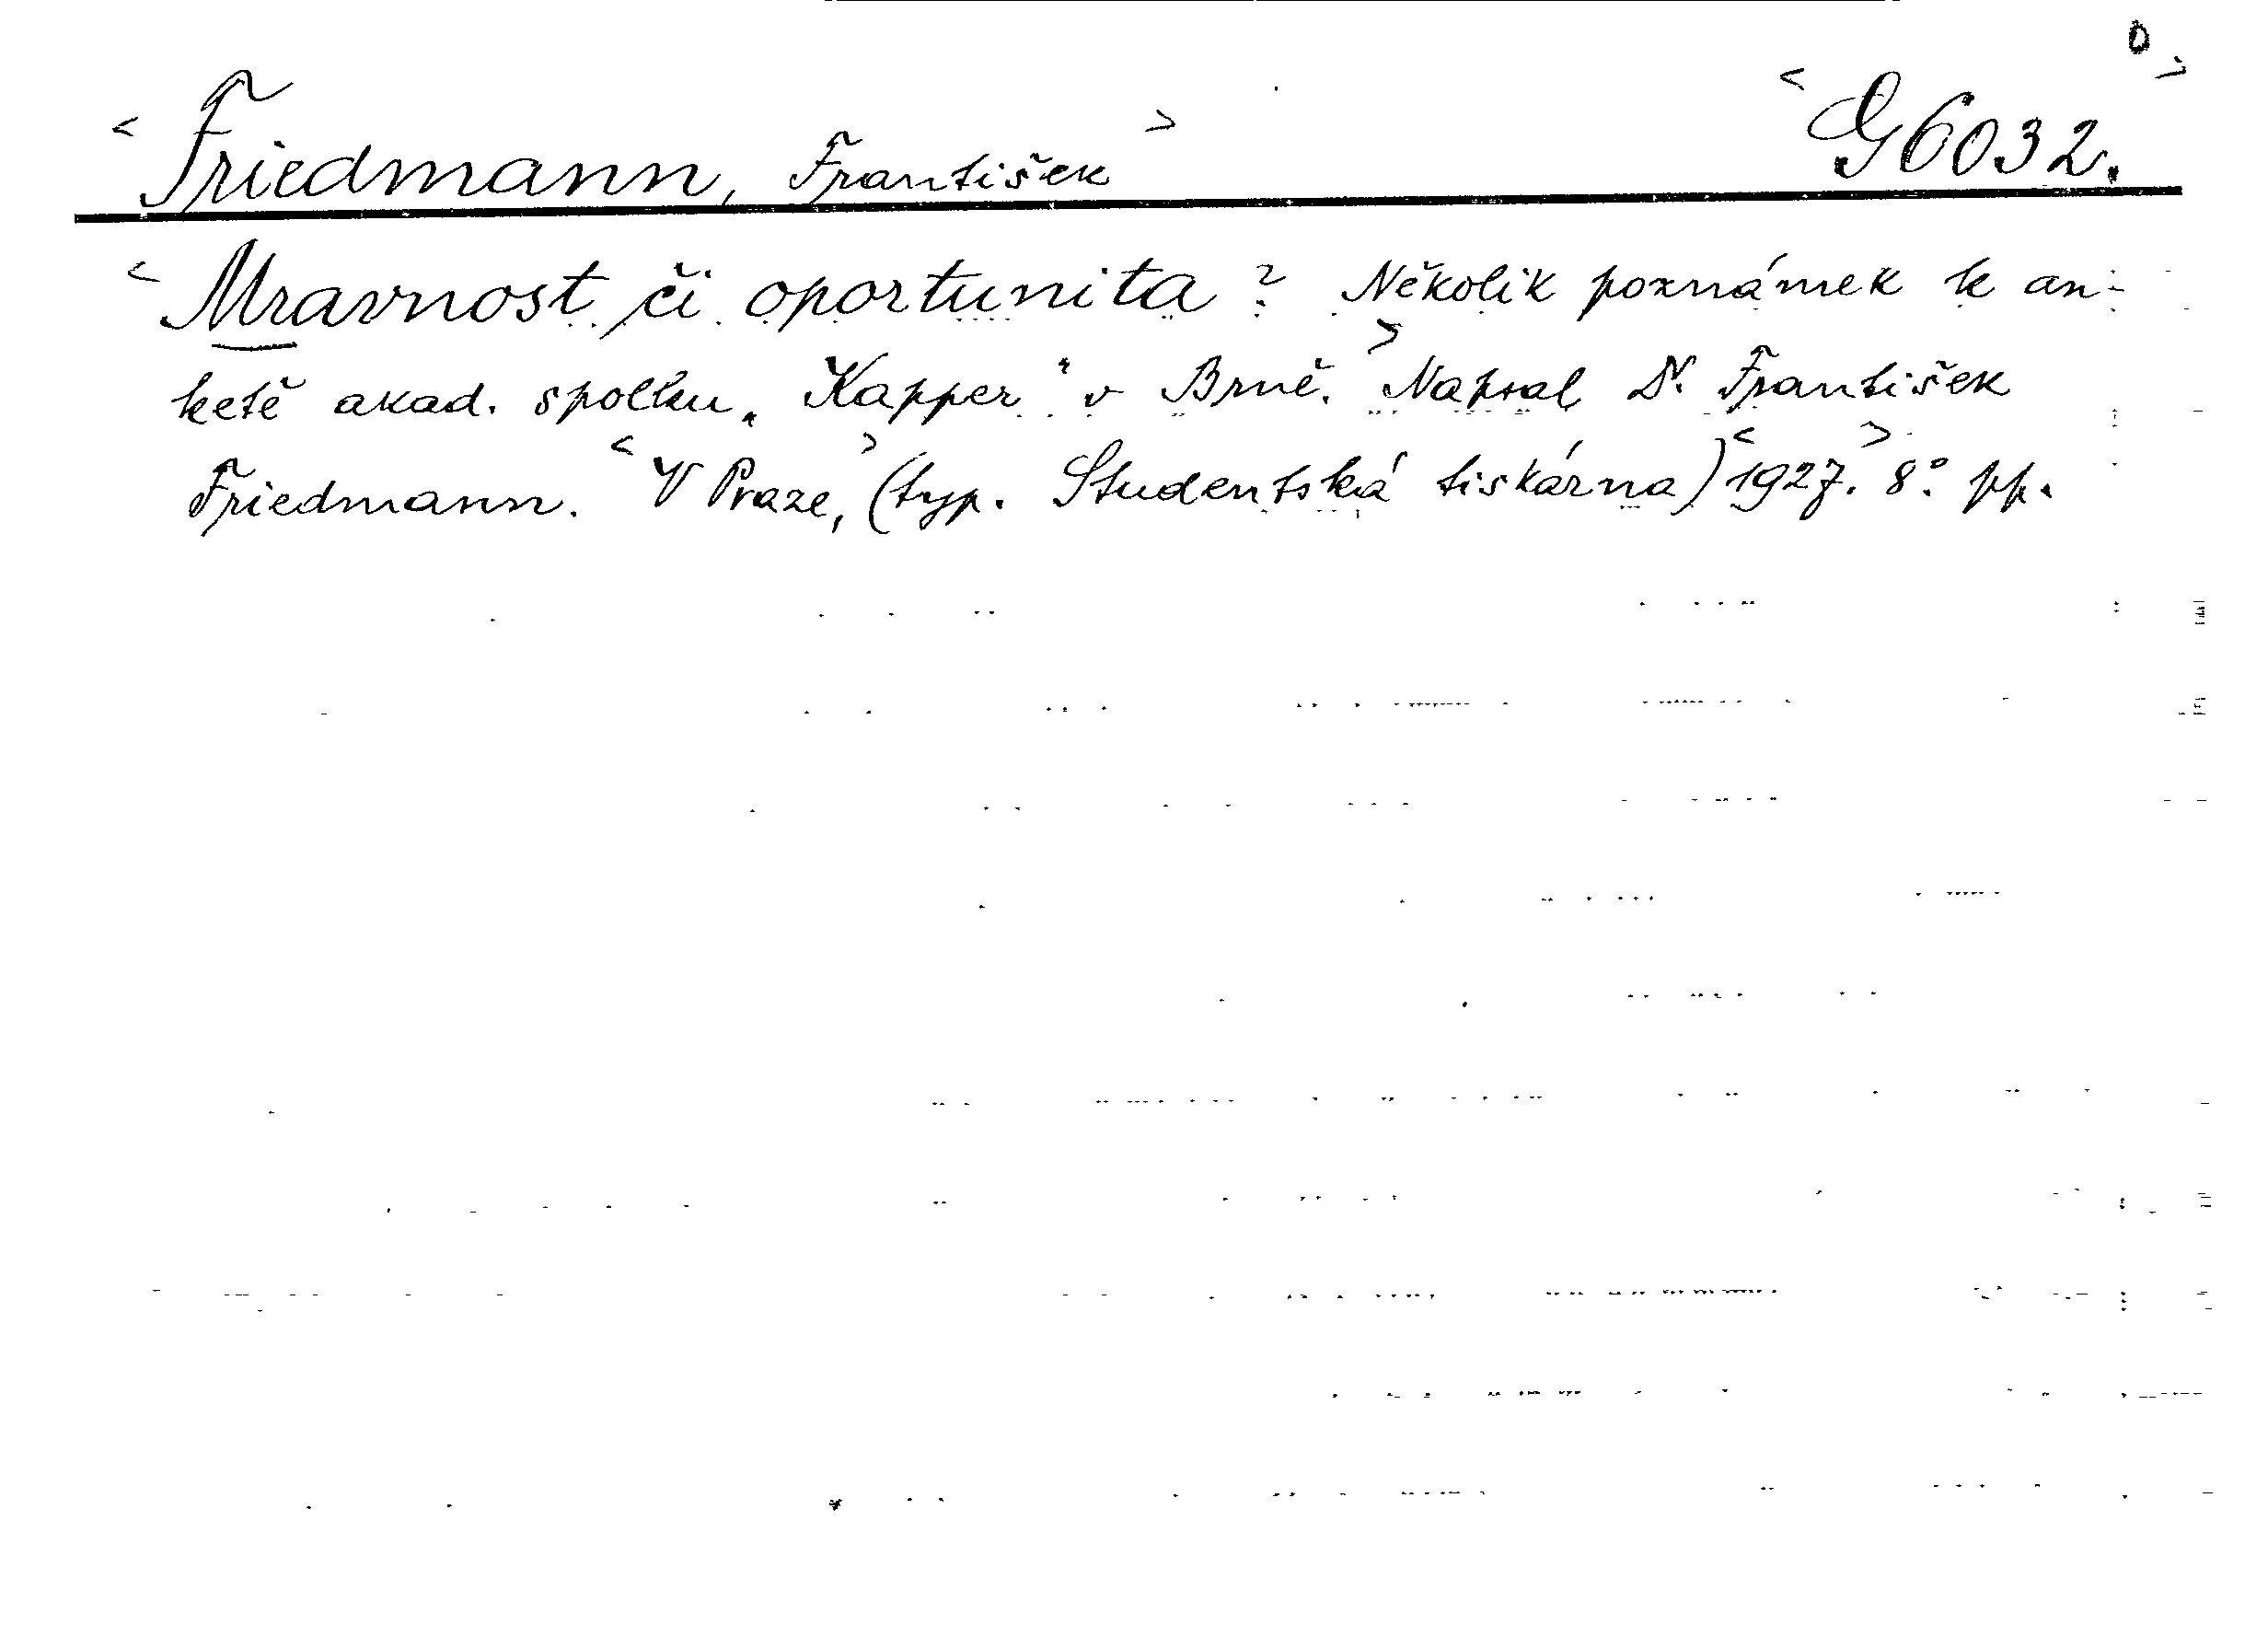 < Friedmann, František > < G 6032. 0 >
< Mravnost či oportunita ? Několik poznámek k an-
ketě akad. spolku „Kapper“ v Brně. > Napsal Dr. František
Friedmann. < V Praze, > (typ. Studentská tiskárna) < 1927. > 8°. pp.